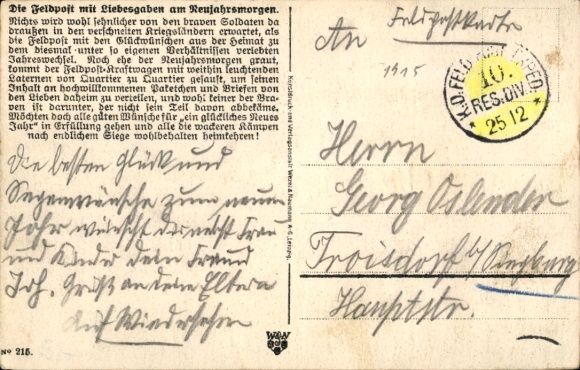 Die Feldpost mit Liebesgaben am Neujahrsmorgen.
Nichts wird wohl sehnlicher von den braven Soldaten da
draußen in den verschneiten Kriegsländern erwartet, als
die Feldpost mit den Glückwünschen aus der Heimat zu
dem diesmal unter so eigenen Verhältnissen verlebten
Jahreswechsel. Noch ehe der Neujahrsmorgen graut,
kommt der Feldpost-Kraftwagen mit weithin leuchtenden
Laternen von Quartier zu Quartier gesaust, um seinen
Inhalt an hochwillkommenen Paketchen und Briefen von
den Lieben daheim zu verteilen, und wohl keiner der Bra-
ven ist darunter, der nicht sein Teil davon abbekäme.
Möchten doch alle guten Wünsche für „ein glückliches Neues
Jahr“ in Erfüllung gehen und alle die wackeren Kämpen
nach endlichem Siege wohlbehalten heimkehren!
Die besten Glück und
Segenwünsche zum neuen
Jahr wünscht dir nebst Frau
und Kinder dein Freund
Joh. Gruß an deine Eltern
Auf Wiedersehen
No 215.
Kunstdruck- und Verlagsanstalt Wezel & Naumann A.-G. Leipzig.
W&N
Feldpostkarte
An
1915
K.D. FELD-POSTEXPED.
10.
RES. DIV.
* 25.12 *
Herrn
Georg Oslender
Troisdorf b/ Siegburg
Hauptstr.